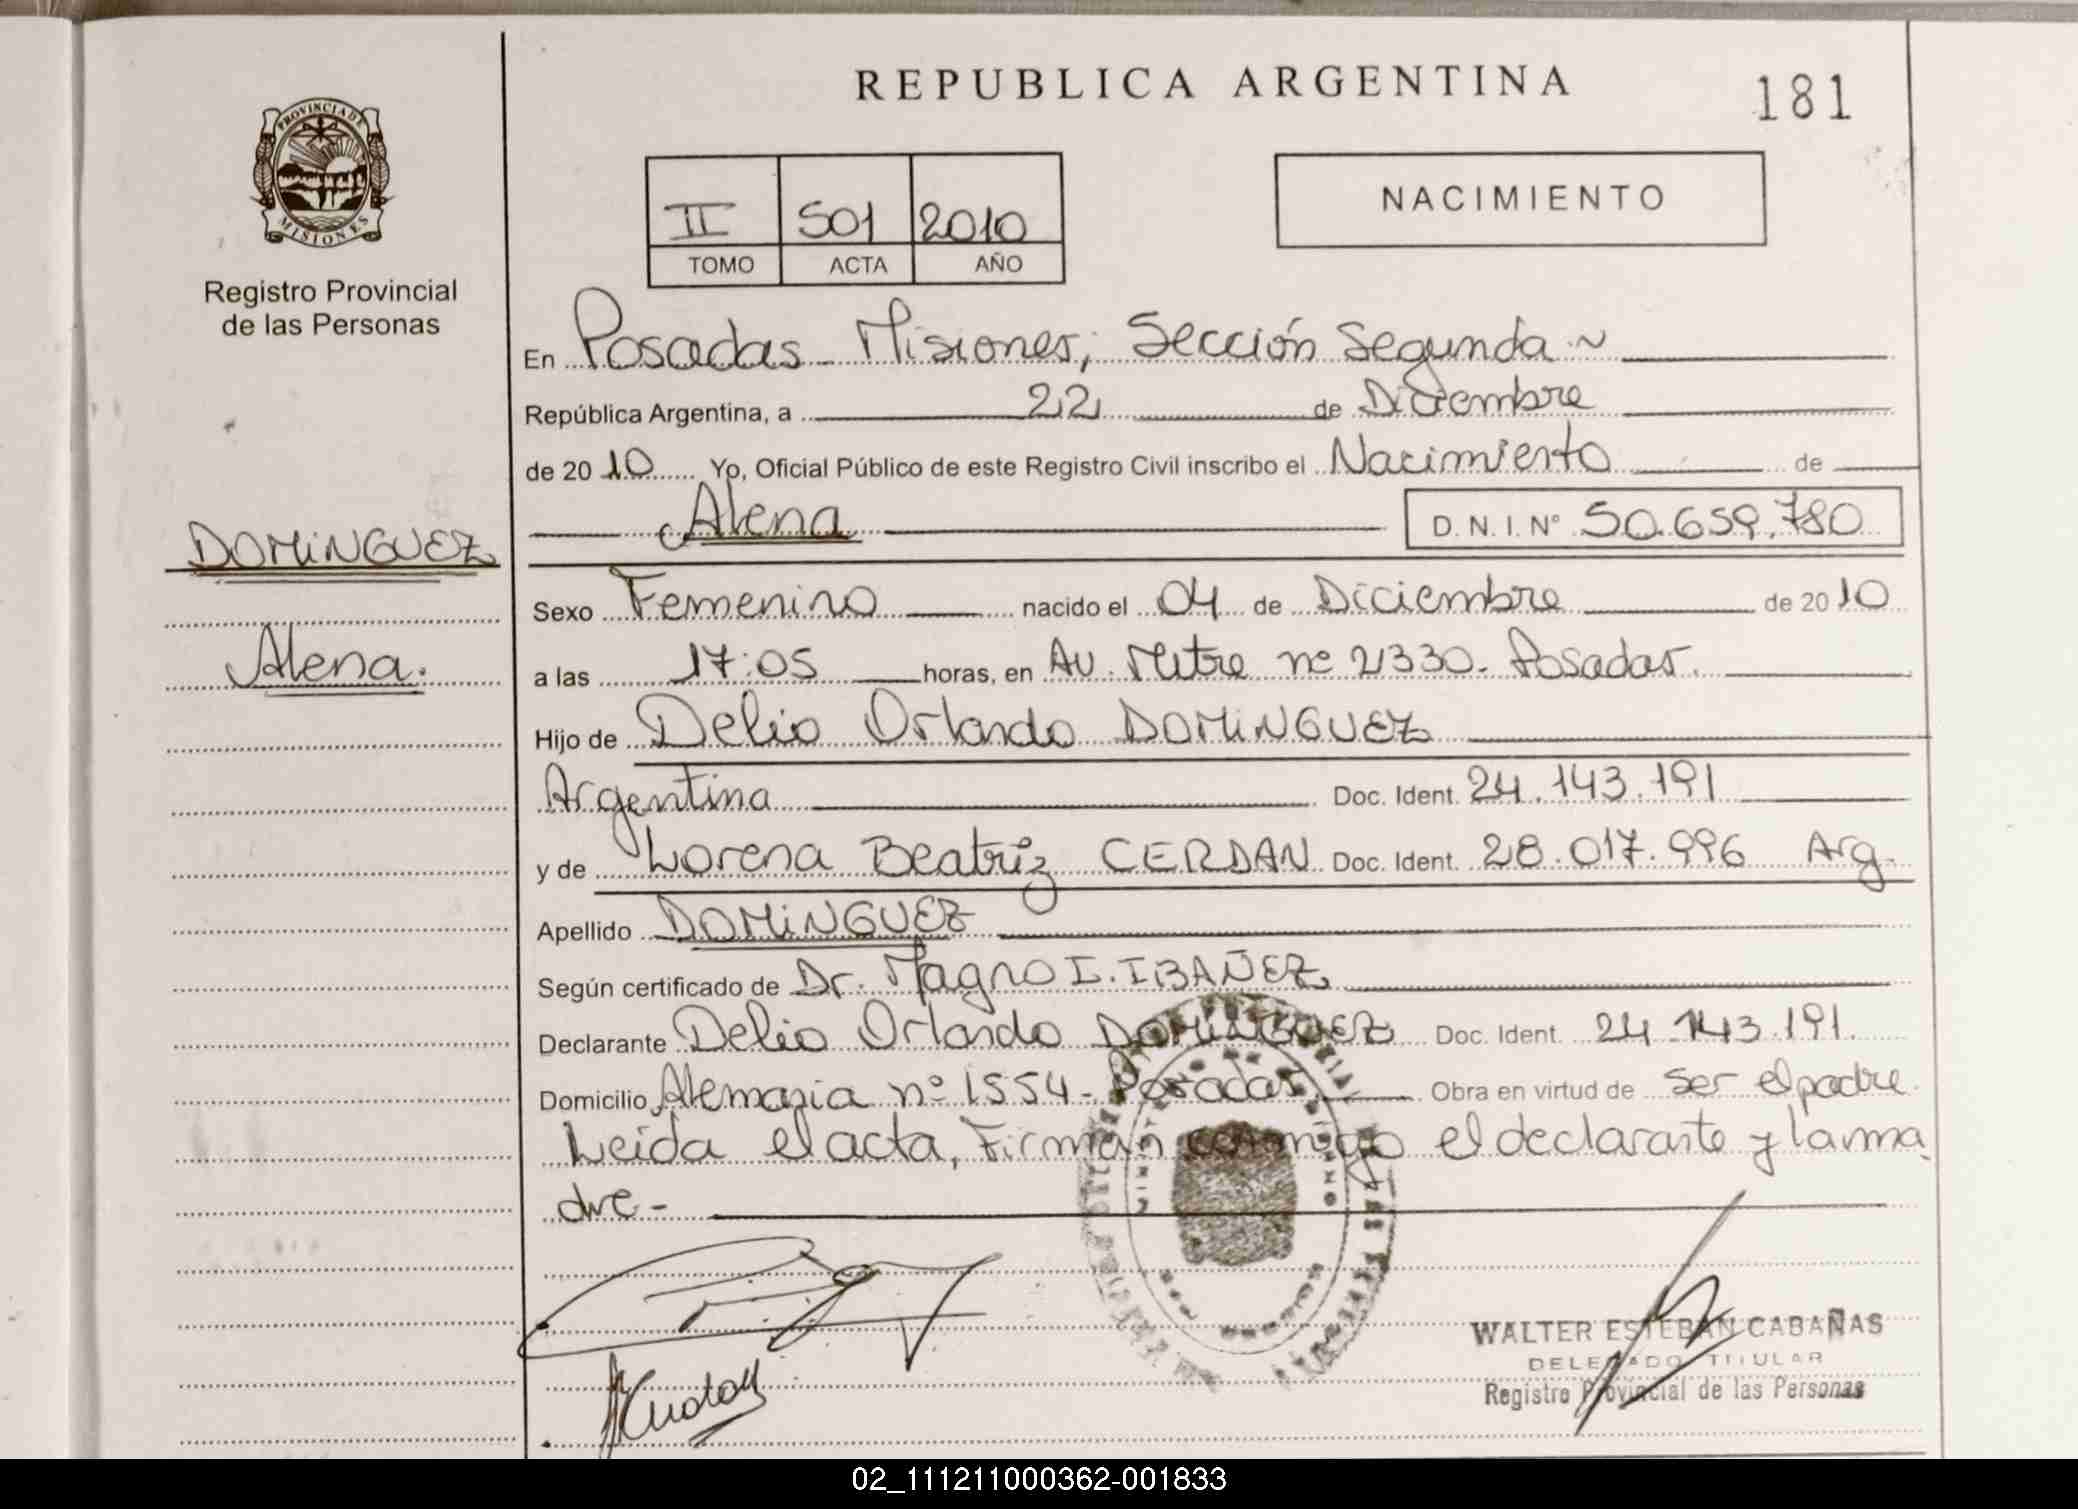 REPUBLICA ARGENTINA
181
PROVINCIA DE
MISIONES
Registro Provincial
de las Personas
II 501 2010
TOMO ACTA AÑO
NACIMIENTO
En Posadas Misiones, Sección Segunda ~
República Argentina, a 22 de Diciembre
de 2010 Yo, Oficial Público de este Registro Civil inscribo el Nacimiento de
Alena D. N. I. N° 50.659.780
DOMiNGUEZ
Sexo Femenino nacido el 04 de Diciembre de 2010
Alena.
a las 17:05 horas, en Av. Mitre nº 2330. Posadas.
Hijo de Delio Orlando DOMiNGUEZ
Argentina Doc. Ident. 24.143.191
y de Lorena Beatriz CERDAN Doc. Ident. 28.017.996 Arg.
Apellido DOMiNGUEZ
Según certificado de Dr. Magno I. IBAÑEZ
Declarante Delio Orlando DOMiNGUEZ Doc. Ident. 24.143.191.
Domicilio Alemania nº 1554- Posadas, Obra en virtud de ser el padre.
Leida el acta, Firman conmigo el declarante y la ma
dre -
WALTER ESTEBAN CABAÑAS
DELEGADO TITULAR
Registro Provincial de las Personas
02_111211000362-001833